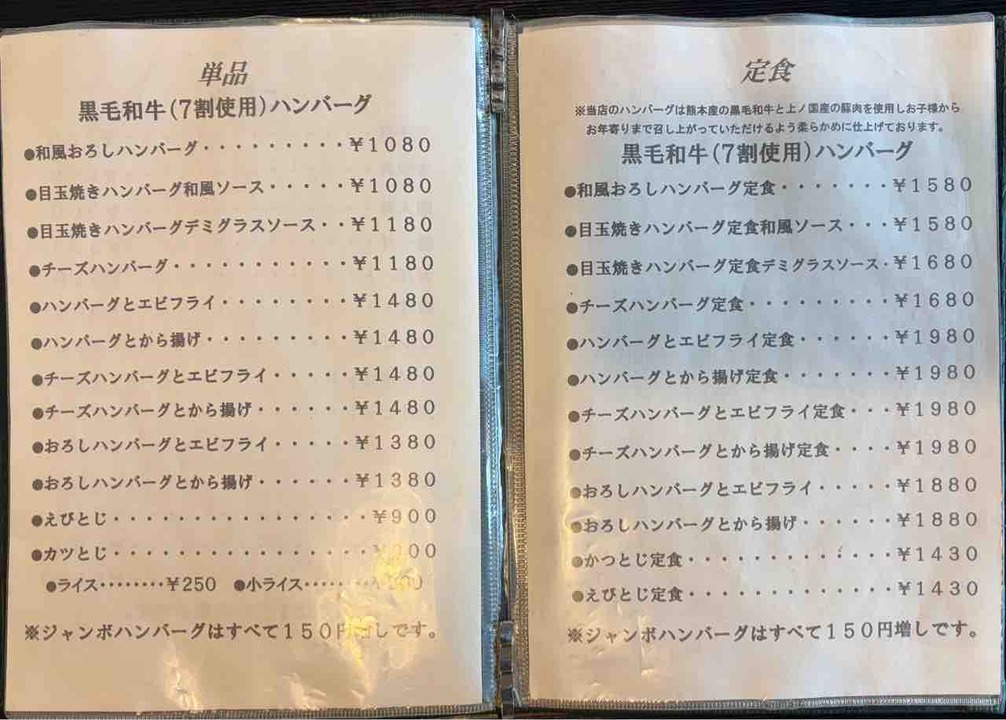 単品
黒毛和牛(7割使用)ハンバーグ
●和風おろしハンバーグ・・・・・・・・・¥1080
●目玉焼きハンバーグ和風ソース・・・・・¥1080
●目玉焼きハンバーグデミグラスソース・・¥1180
●チーズハンバーグ・・・・・・・・・・・¥1180
●ハンバーグとエビフライ・・・・・・・・¥1480
●ハンバーグとから揚げ・・・・・・・・・¥1480
●チーズハンバーグとエビフライ・・・・・¥1480
●チーズハンバーグとから揚げ・・・・・・¥1480
●おろしハンバーグとエビフライ・・・・・¥1380
●おろしハンバーグとから揚げ・・・・・・¥1380
●えびとじ・・・・・・・・・・・・・・・・¥900
●カツとじ・・・・・・・・・・・・・・・・
●ライス・・・・・・・・・¥250 ●小ライス・・・・・・・
※ジャンボハンバーグはすべて150円増しです。
定食
※当店のハンバーグは熊本産の黒毛和牛と上ノ国産の豚肉を使用しお子様から
お年寄りまで召し上がっていただけるよう柔らかめに仕上げております。
黒毛和牛(7割使用)ハンバーグ
●和風おろしハンバーグ定食・・・・・・・¥1580
●目玉焼きハンバーグ定食和風ソース・・・¥1580
●目玉焼きハンバーグ定食デミグラスソース・¥1680
●チーズハンバーグ定食・・・・・・・・・¥1680
●ハンバーグとエビフライ定食・・・・・・¥1980
●ハンバーグとから揚げ定食・・・・・・・¥1980
●チーズハンバーグとエビフライ定食・・・¥1980
●チーズハンバーグとから揚げ定食・・・・¥1980
●おろしハンバーグとエビフライ・・・・・¥1880
●おろしハンバーグとから揚げ・・・・・・¥1880
●かつとじ定食・・・・・・・・・・・・・¥1430
●えびとじ定食・・・・・・・・・・・・・¥1430
※ジャンボハンバーグはすべて150円増しです。